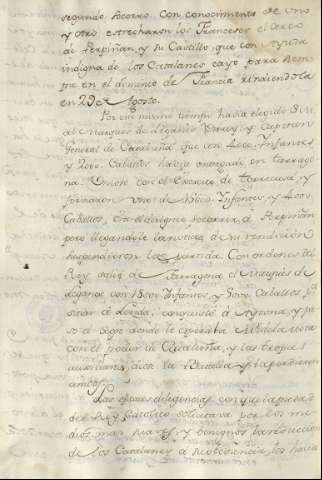 segundo Socorro. Con conocimiento de uno
y otro estrecharon los Franceses el cerco
de Perpiñan, y su Castillo, que con ayuda
indigna de los Catalanes cayó para siem-
pre en el dominio de Francia rindiendola
en 29 de Agosto.
Por este mismo tiempo havia elegido S. M.
al Marques de Leganés Virrey, y Capitan
General de Cataluña, que con Infantes
y Caballos havia entrado en Tarrago-
na. Uniose con el Exercito de Torrecusa, y
formaron uno de Infantes, y
Caballos, era el designio socorrer á Perpiñan
pero llegandole la noticia de su rendicion
suspendieron la partida. Con ordenes del
Rey salió de Tarragona el Marques de
Leganes con Infantes, y Caballos
sitiar á Lerida, conquistó á Aytona, y pa-
só á Segre donde le esperaba Motta
con el poder de Cataluña, y las tropas
auxiliares, dióse la Batalla, y la perdieron
ambos.
Las eficaces diligencias con que la piedad
del Rey Catolico solicitava por los me-
dios mas suaves, y benignos la reduccion
de los Catalanes á su obediencia, los hacia